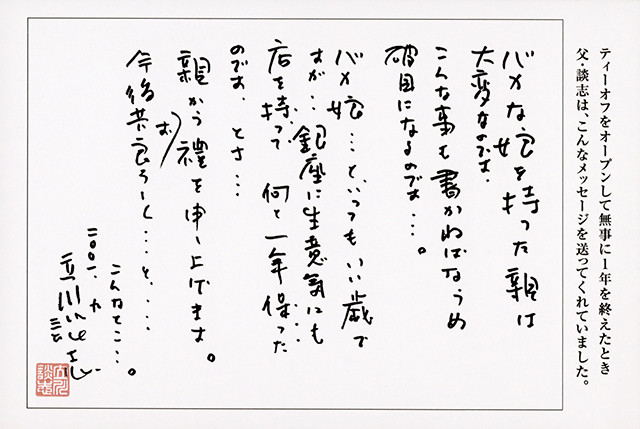 ティーオフをオープンして無事に1年を終えたとき
父・談志は、こんなメッセージを送ってくれていました。
バカな娘を持った親は
大変なのです.
こんな事も書かねばならぬ
破目になるのです…。
バカ娘…と、いってもいい歳で
すが…銀座に生意気にも
店を持って 何と一年保った
のです. とさ…
親から お禮を申し上げます。
今后共良ろしく…と、…
こんなとこ…。
二〇〇一. 九
立川談志